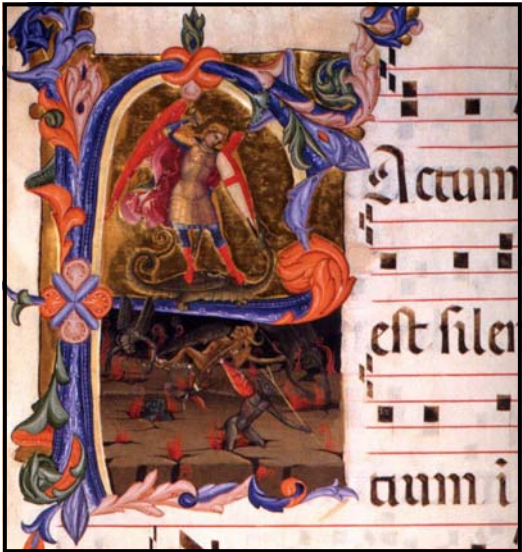 FActum
est silen
tium i